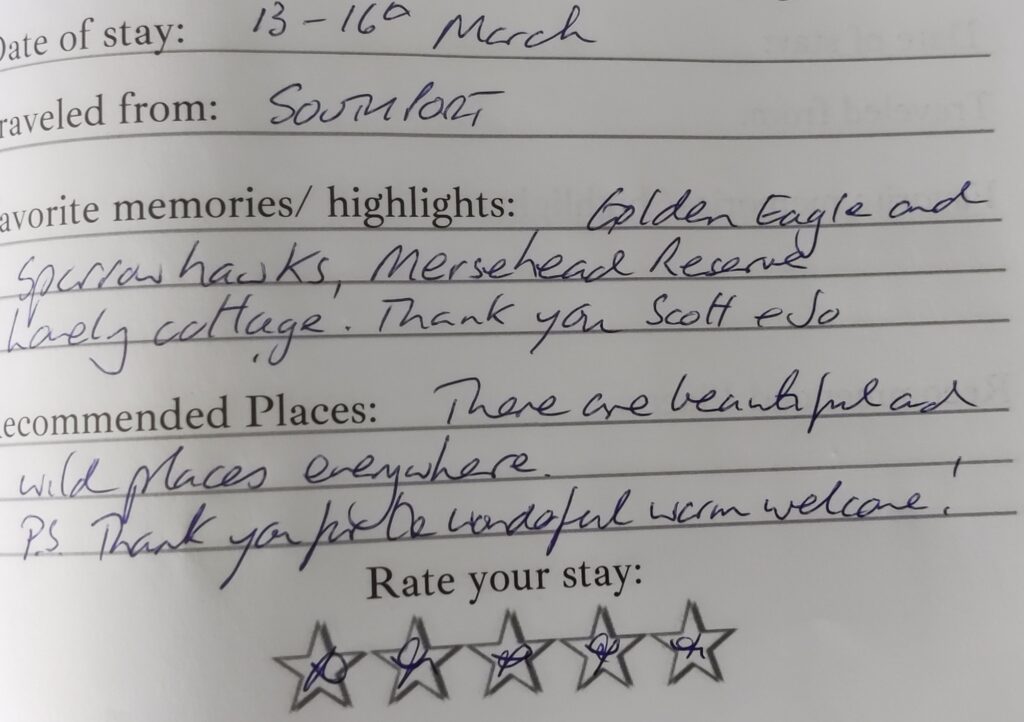 Date of stay: 13 - 16th March
raveled from: SOUTHPORT
avorite memories/ highlights: Golden Eagle and
Sparrowhawks, Mersehead Reserve
Lovely cottage. Thank you Scott & Jo
ecommended Places: There are beautiful and
wild places everywhere.
P.S. Thank you for the wonderful warm welcome!
Rate your stay: